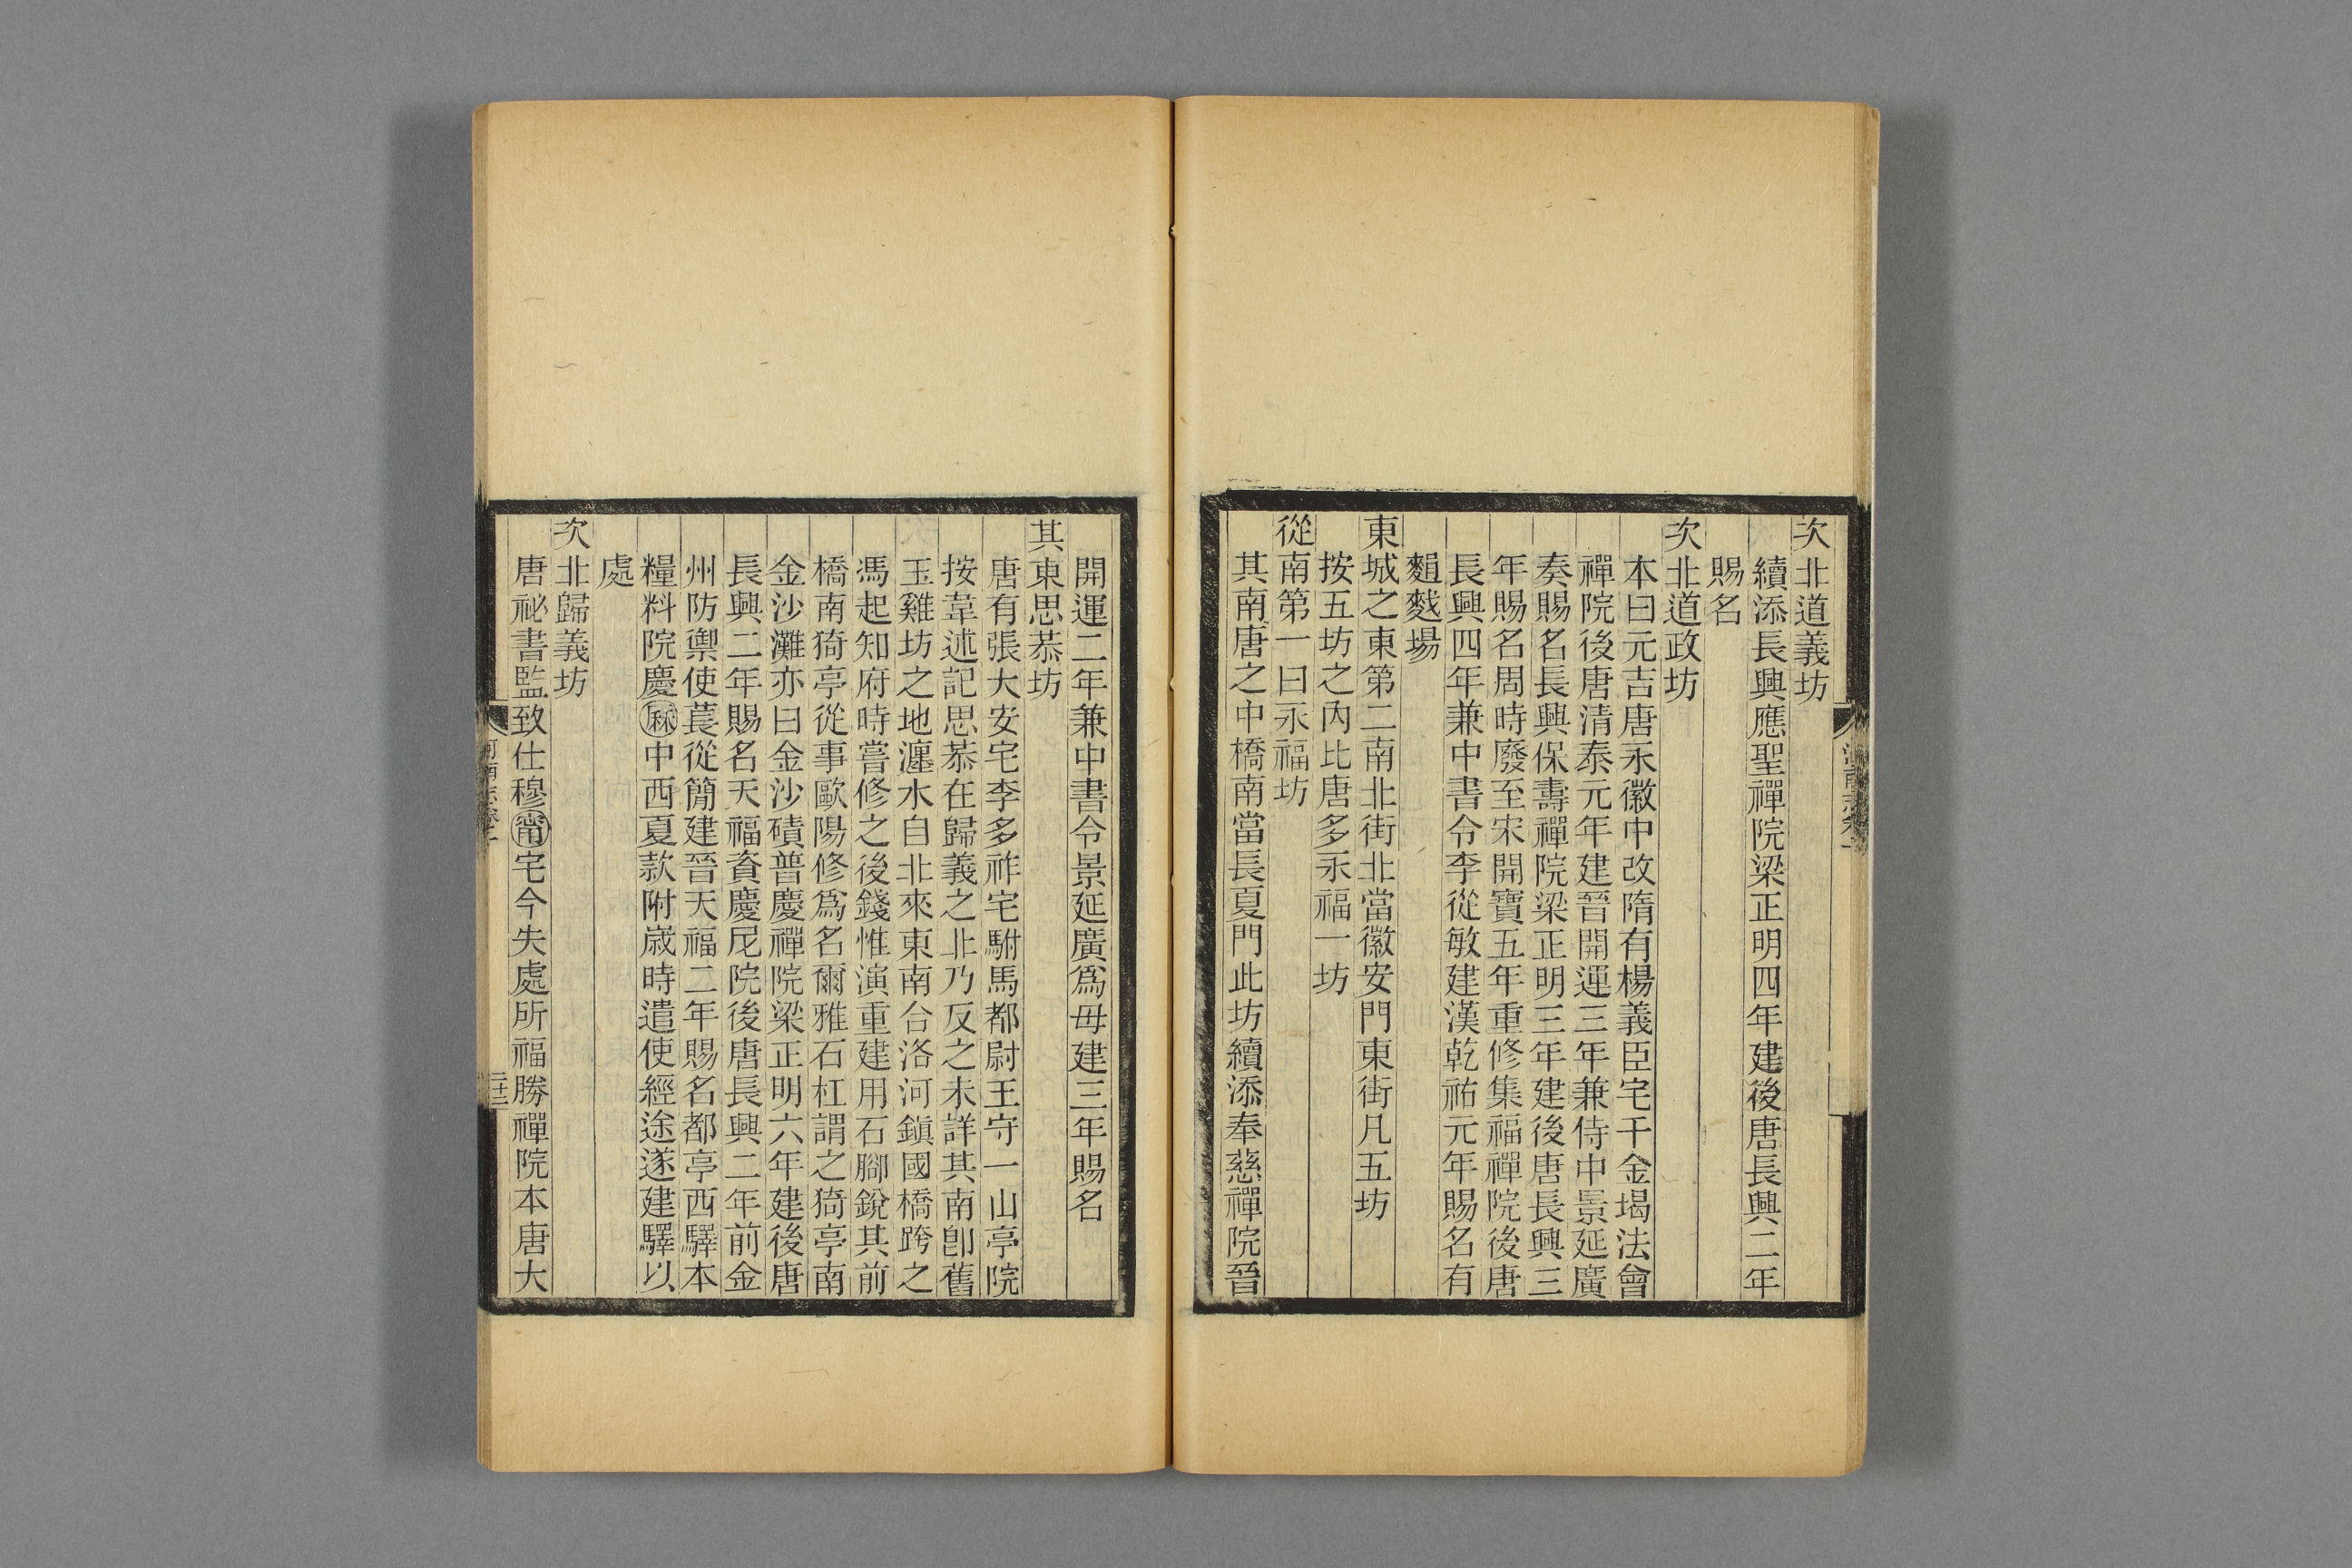 次北道義坊
續添長興應聖禪院梁正明四年建後唐長興二年
賜名
次北道政坊
本曰元吉唐永徽中改隋有楊義臣宅千金堨法會
禪院後唐清泰元年建晉開運三年兼侍中景延廣
奏賜名長興保壽禪院梁正明三年建後唐長興三
年賜名周時廢至宋開寶五年重修集福禪院後唐
長興四年兼中書令李從敏建漢乾祐元年賜名有
麴場
東城之東第二南北街北當徽安門東街凡五坊
按五坊之內比唐多永福一坊
從南第一曰永福坊
其南唐之中橋南當長夏門此坊續添奉慈禪院晉
開運二年兼中書令景延廣爲母建三年賜名
其東思恭坊
唐有張大安宅李多祚宅駙馬都尉王守一山亭院
按韋述記思恭在歸義之北乃反之未詳其南卽舊
玉雞坊之地瀍水自北來東南合洛河鎭國橋跨之
馮起知府時嘗修之後錢惟演重建用石腳銳其前
橋南猗亭從事歐陽修爲名爾雅石杠謂之猗亭南
金沙灘亦曰金沙磧普慶禪院梁正明六年建後唐
長興二年賜名天福資慶尼院後唐長興二年前金
州防禦使萇從簡建晉天福二年賜名都亭西驛本
糧料院慶厤中西夏款附歲時遣使經途遂建驛以
處
次北歸義坊
唐祕書監致仕穆甯宅今失處所福勝禪院本唐大